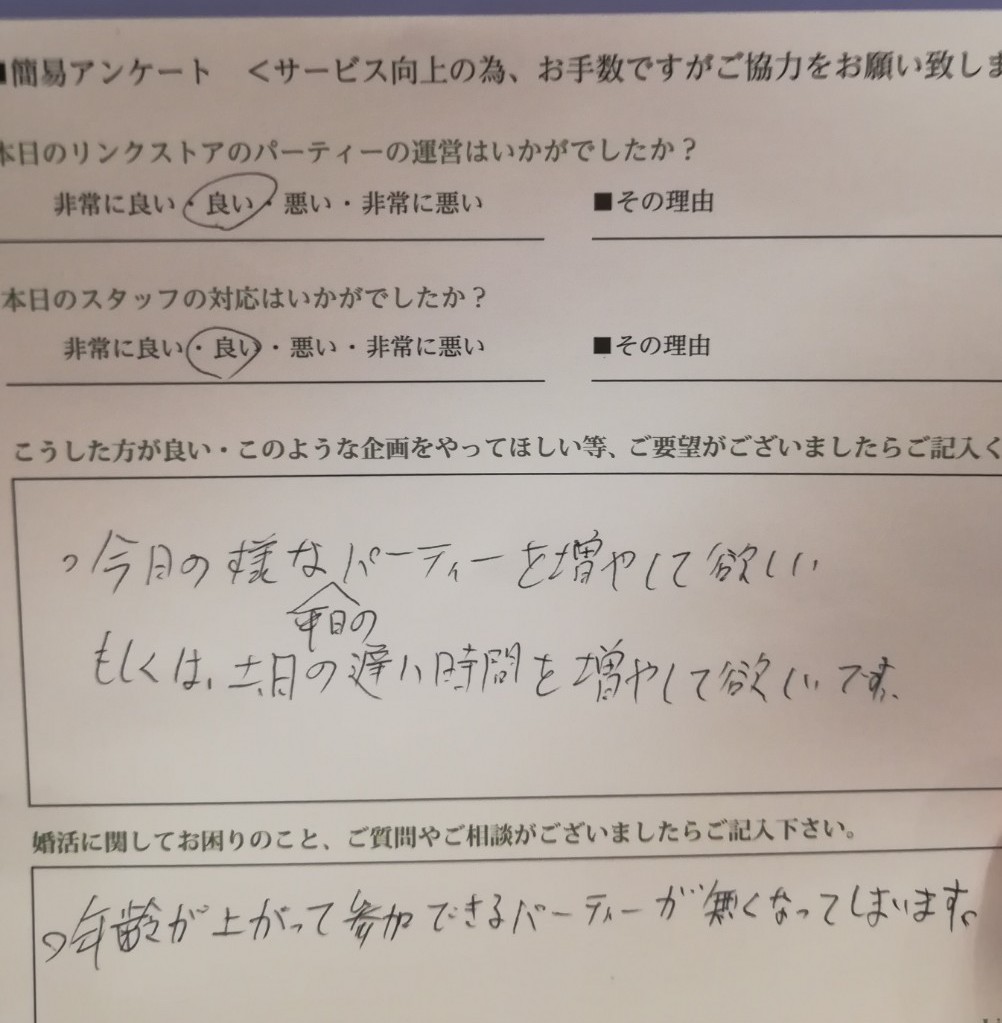 ■簡易アンケート <サービス向上の為、お手数ですがご協力をお願い致しま
本日のリンクストアのパーティーの運営はいかがでしたか？
非常に良い・良い・悪い・非常に悪い ■その理由
本日のスタッフの対応はいかがでしたか？
非常に良い・良い・悪い・非常に悪い ■その理由
こうした方が良い・このような企画をやってほしい等、ご要望がございましたらご記入く
今日の様なパーティーを増やして欲しい
平日の
もしくは、土日の遅い時間を増やして欲しいです。
婚活に関してお困りのこと、ご質問やご相談がございましたらご記入下さい。
年齢が上がって参加できるパーティーが無くなってしまいます。